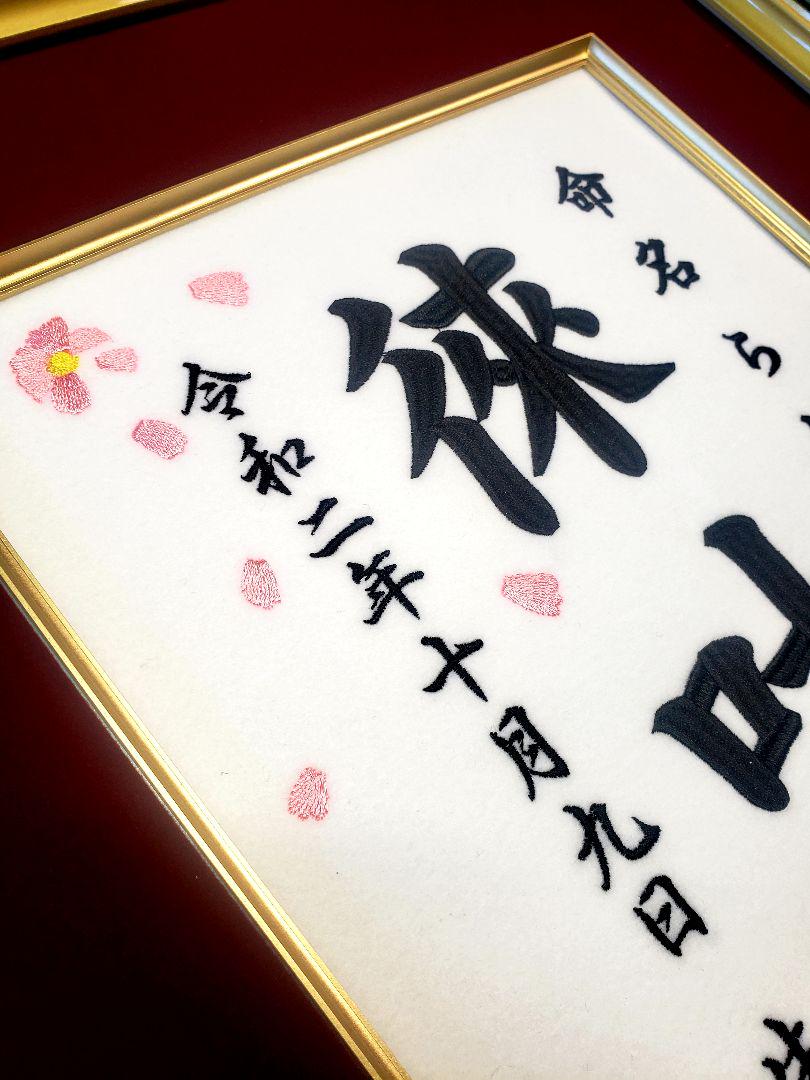 命名 ら
徠
令和二年十月九日